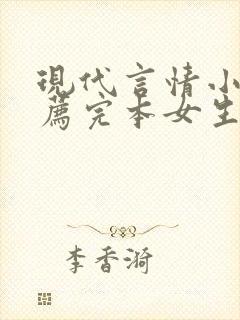 現代言情小
薦完本女生
李香漪